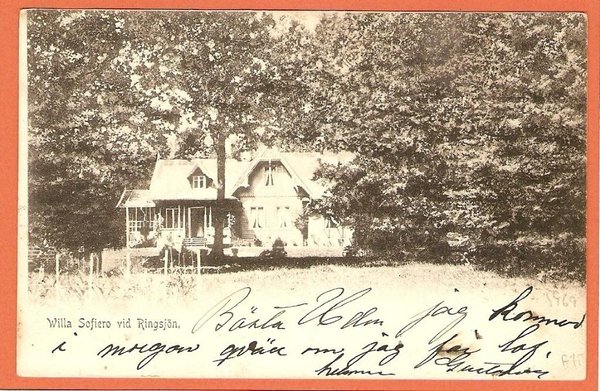 Willa Sofiero vid Ringsjön.
Bästa Holm jag kommer
i morgon qväll om jag får lof.
hemma
1969